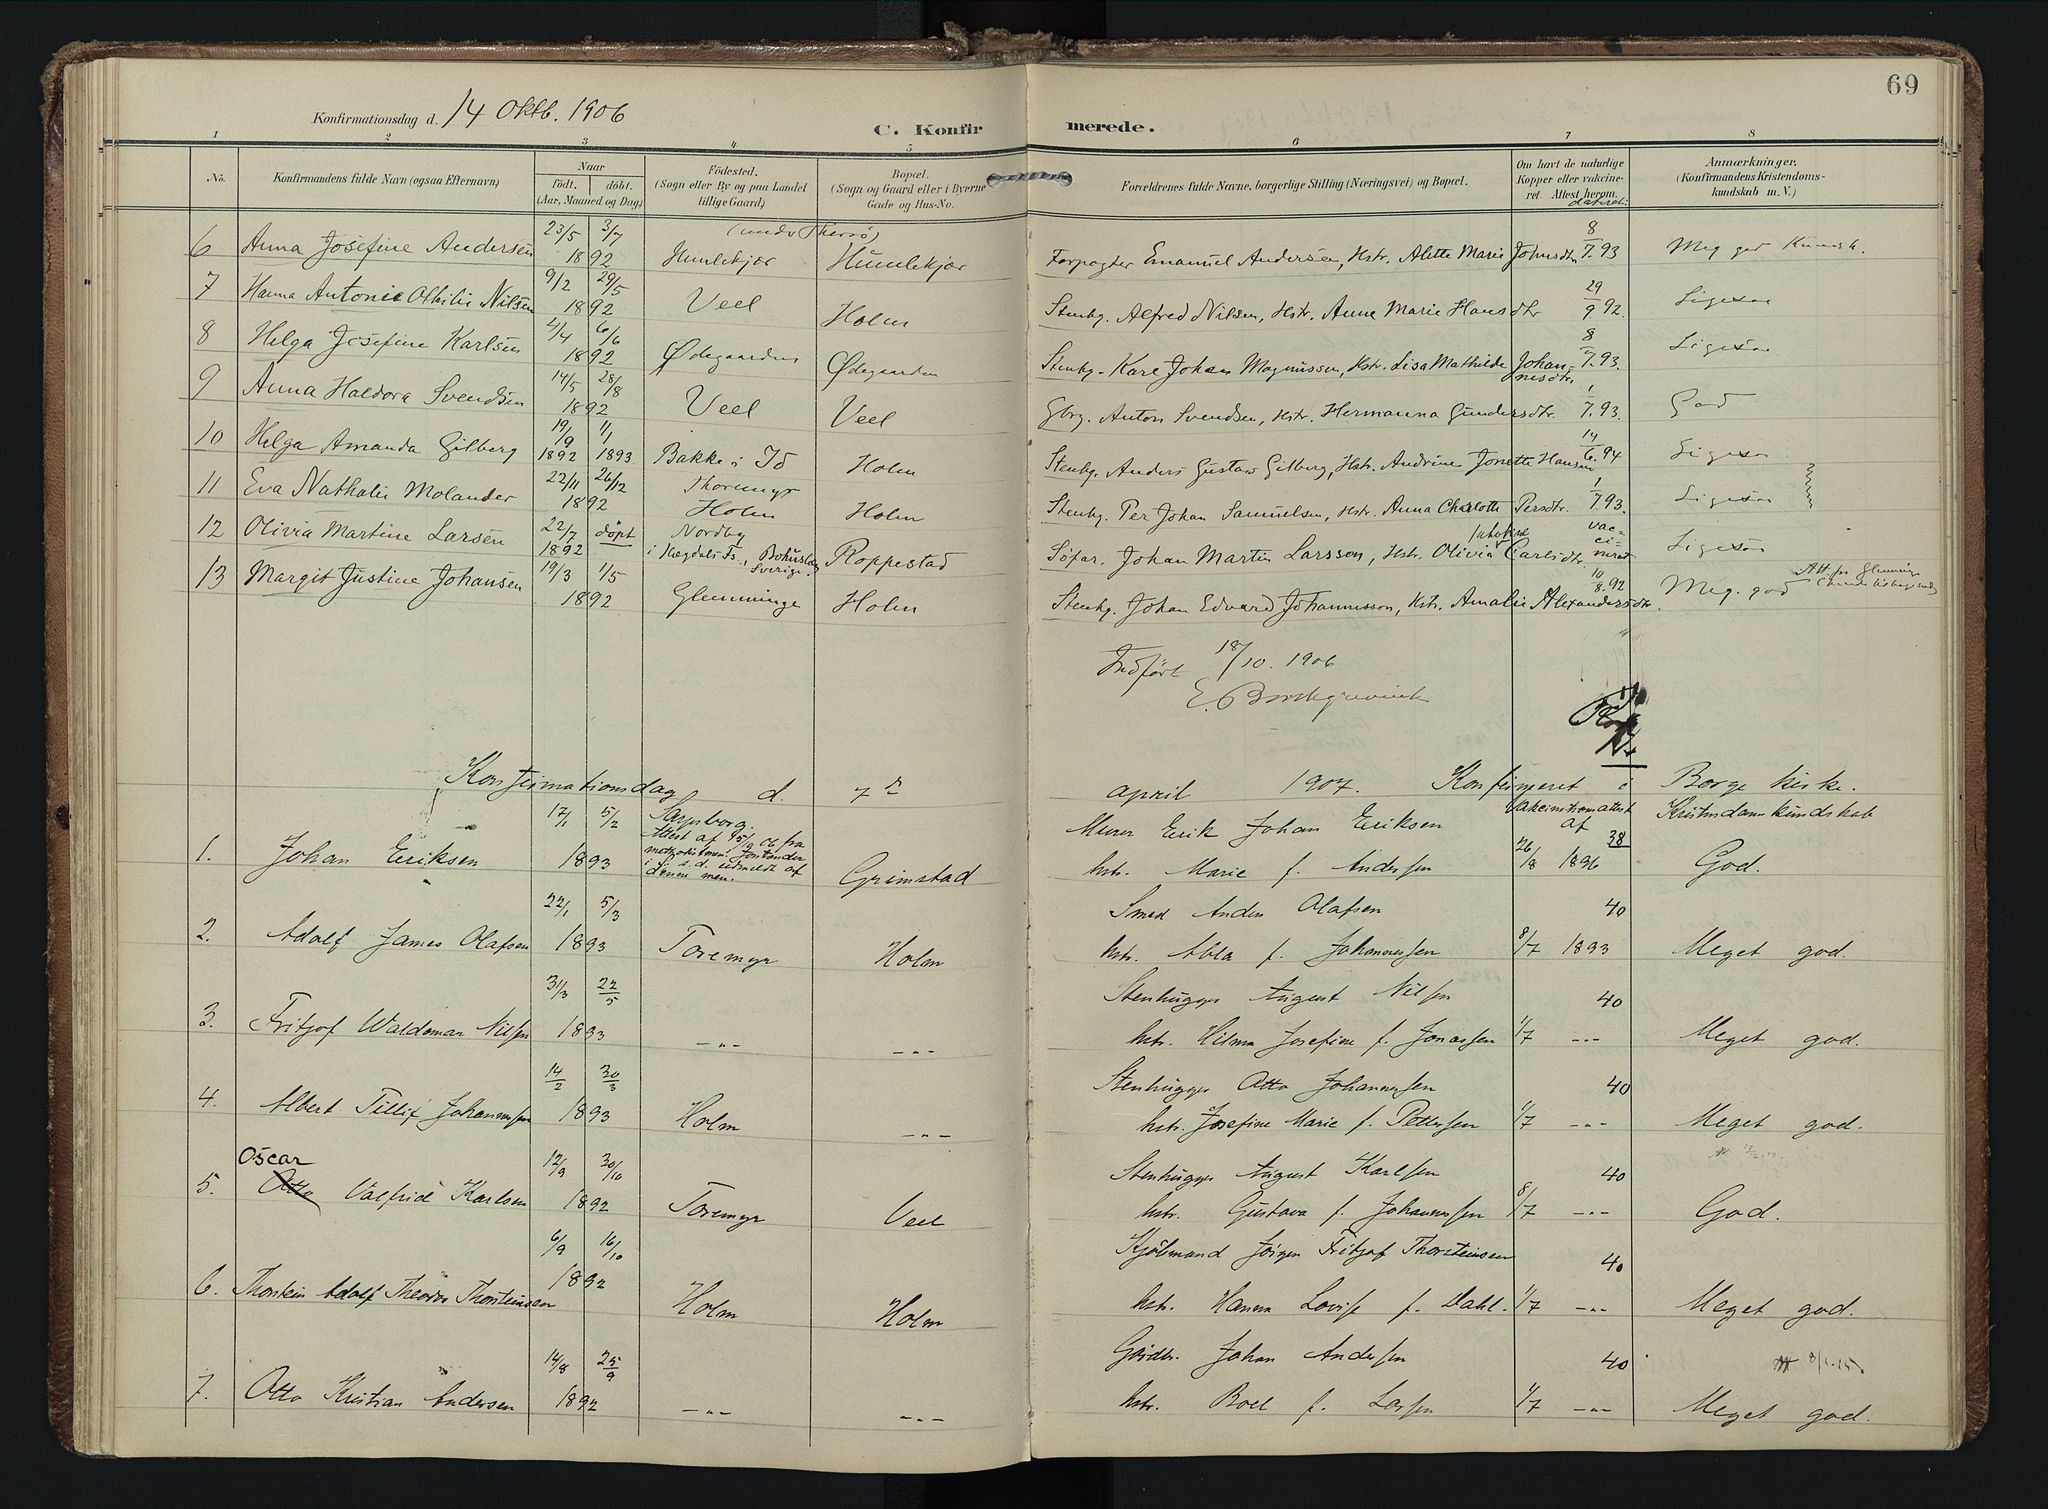 69
Konfirmationsdag d. 14 Oktb. 1906
C. Konfir merede.
1 2 3 4 5 6 7 8
No. Konfirmandens fulde Navn (ogsaa Efternavn) Naar födt. döbt. (Aar, Maaned og Dag) Födested. (Sogn eller By og paa Landet tillige Gaard) Bopæl. (Sogn og Gaard eller i Byerne Gade og Hus-No. Forældrenes fulde Navne, borgerlige Stilling (Næringsvei) og Bopæl. Om havt de naturlige Kopper eller vakcineret. Attest herom. dateret: Anmærkninger. (Konfirmandens Kristendomskundskab m. V.)
6 Anna Josefine Andersen 23/5 3/7 1892 (under Thorsø) Humlekjær Humlekjær Forpagter Emanuel Andersen, Hstr. Alette Marie Johnsdtr 8/7.93 Meg. god Kundsk.
7 Hanna Antonie Othilie Nilsen 9/2 29/5 1892 Veel Holm Stenhg. Alfred Nilsen, Hstr. Anne Marie Hansdtr 29/9 92. Ligesaa
8 Helga Josefine Karlsen 4/4 6/6 1892 Ødegaarden Ødegaarden Stenhg. Karl Johan Magnussen, Hstr. Lisa Mathilde Johannisdtr. 8/7.93. Ligesaa
9 Anna Haldora Svendsen 14/5 28/8 1892 Veel Veel Gbrg. Anton Svendsen, Hstr. Hermanna Gundersdtr. 1/7.93. God
10 Helga Amanda Gilberg 19/9 1892 1/1 1893 Bakke i Id Holm Stenhg. Anders Gustav Gilberg, Hstr. Andrine Jonette Hansen 14/6.94 Ligesaa
11 Eva Nathalie Molander 22/11 26/12 1892 Thoremyr Holm Holm Stenhg. Per Johan Samuelsen, Hstr. Anna Charlotte Persdtr. 1/7.93. Ligesaa
12 Olivia Martine Larsen 22/7 döpt 1892 Nordby i Bohuslen, Sverige. Roppestad Søfar. Johan Martin Larsson, Hstr. Olivia Carlsdtr. vaccineret Ligesaa
13 Margit Justine Johansen 19/3 1/5 1892 Glemminge Holm Stenhg. Johan Edvard Johannesson, Hstr. Amalie Alexandersdtr. 10/8.92 Meg. god Att. fra Glemminge
Indført 18/10. 1906
E. Borchgrevink
Konfirmationsdag d. 7de april 1907. Konfirmeret i Borge kirke.
Vakcinationsattest af Kristendomskundskab
1. Johan Eriksen 17/1 5/2 1893 Sarpsborg. Grimstad Murer Erik Johan Eriksen hstr. Marie f. Andersen 38 26/8 1896 God.
2. Adolf James Olafsen 22/1 5/3 1893 Toremyr Holm Smed Anders Olafsen hstr. Abla f. Johannessen 40 8/7 1893 Meget god.
3. Fritjof Waldemar Nilsen 31/3 22/5 1893 -"- -"- Stenhugger August Nilsen hstr. Hilma Josefine f. Jonassen 40 1/7 -"- Meget god.
4. Albert Tellif Johannessen 14/2 30/3 1893 Holm -"- Stenhugger Otto Johannessen hstr. Josefine Marie f. Pettersen 40 1/7 -"- Meget god.
5. Oscar Otto Valfrid Karlsen 12/9 30/10 1892 Toremyr Veel Stenhugger August Karlsen hstr. Gustava f. Johannessen 40 8/7 -"- God.
6. Thorstein Adolf Theodor Thorsteinsen 6/9 16/10 1892 Holm Holm Kjøbmand Jörgen Fritjof Thorsteinsen hstr. Hanna Lovise f. Dahl. 40 1/7 -"- Meget god.
7. Otto Kristian Andersen 14/8 25/9 1892 -"- -"- Gårdbr. Johan Andersen hstr. Boel f. Larsen 40 1/7 -"- Att 8/1.15 Meget god.